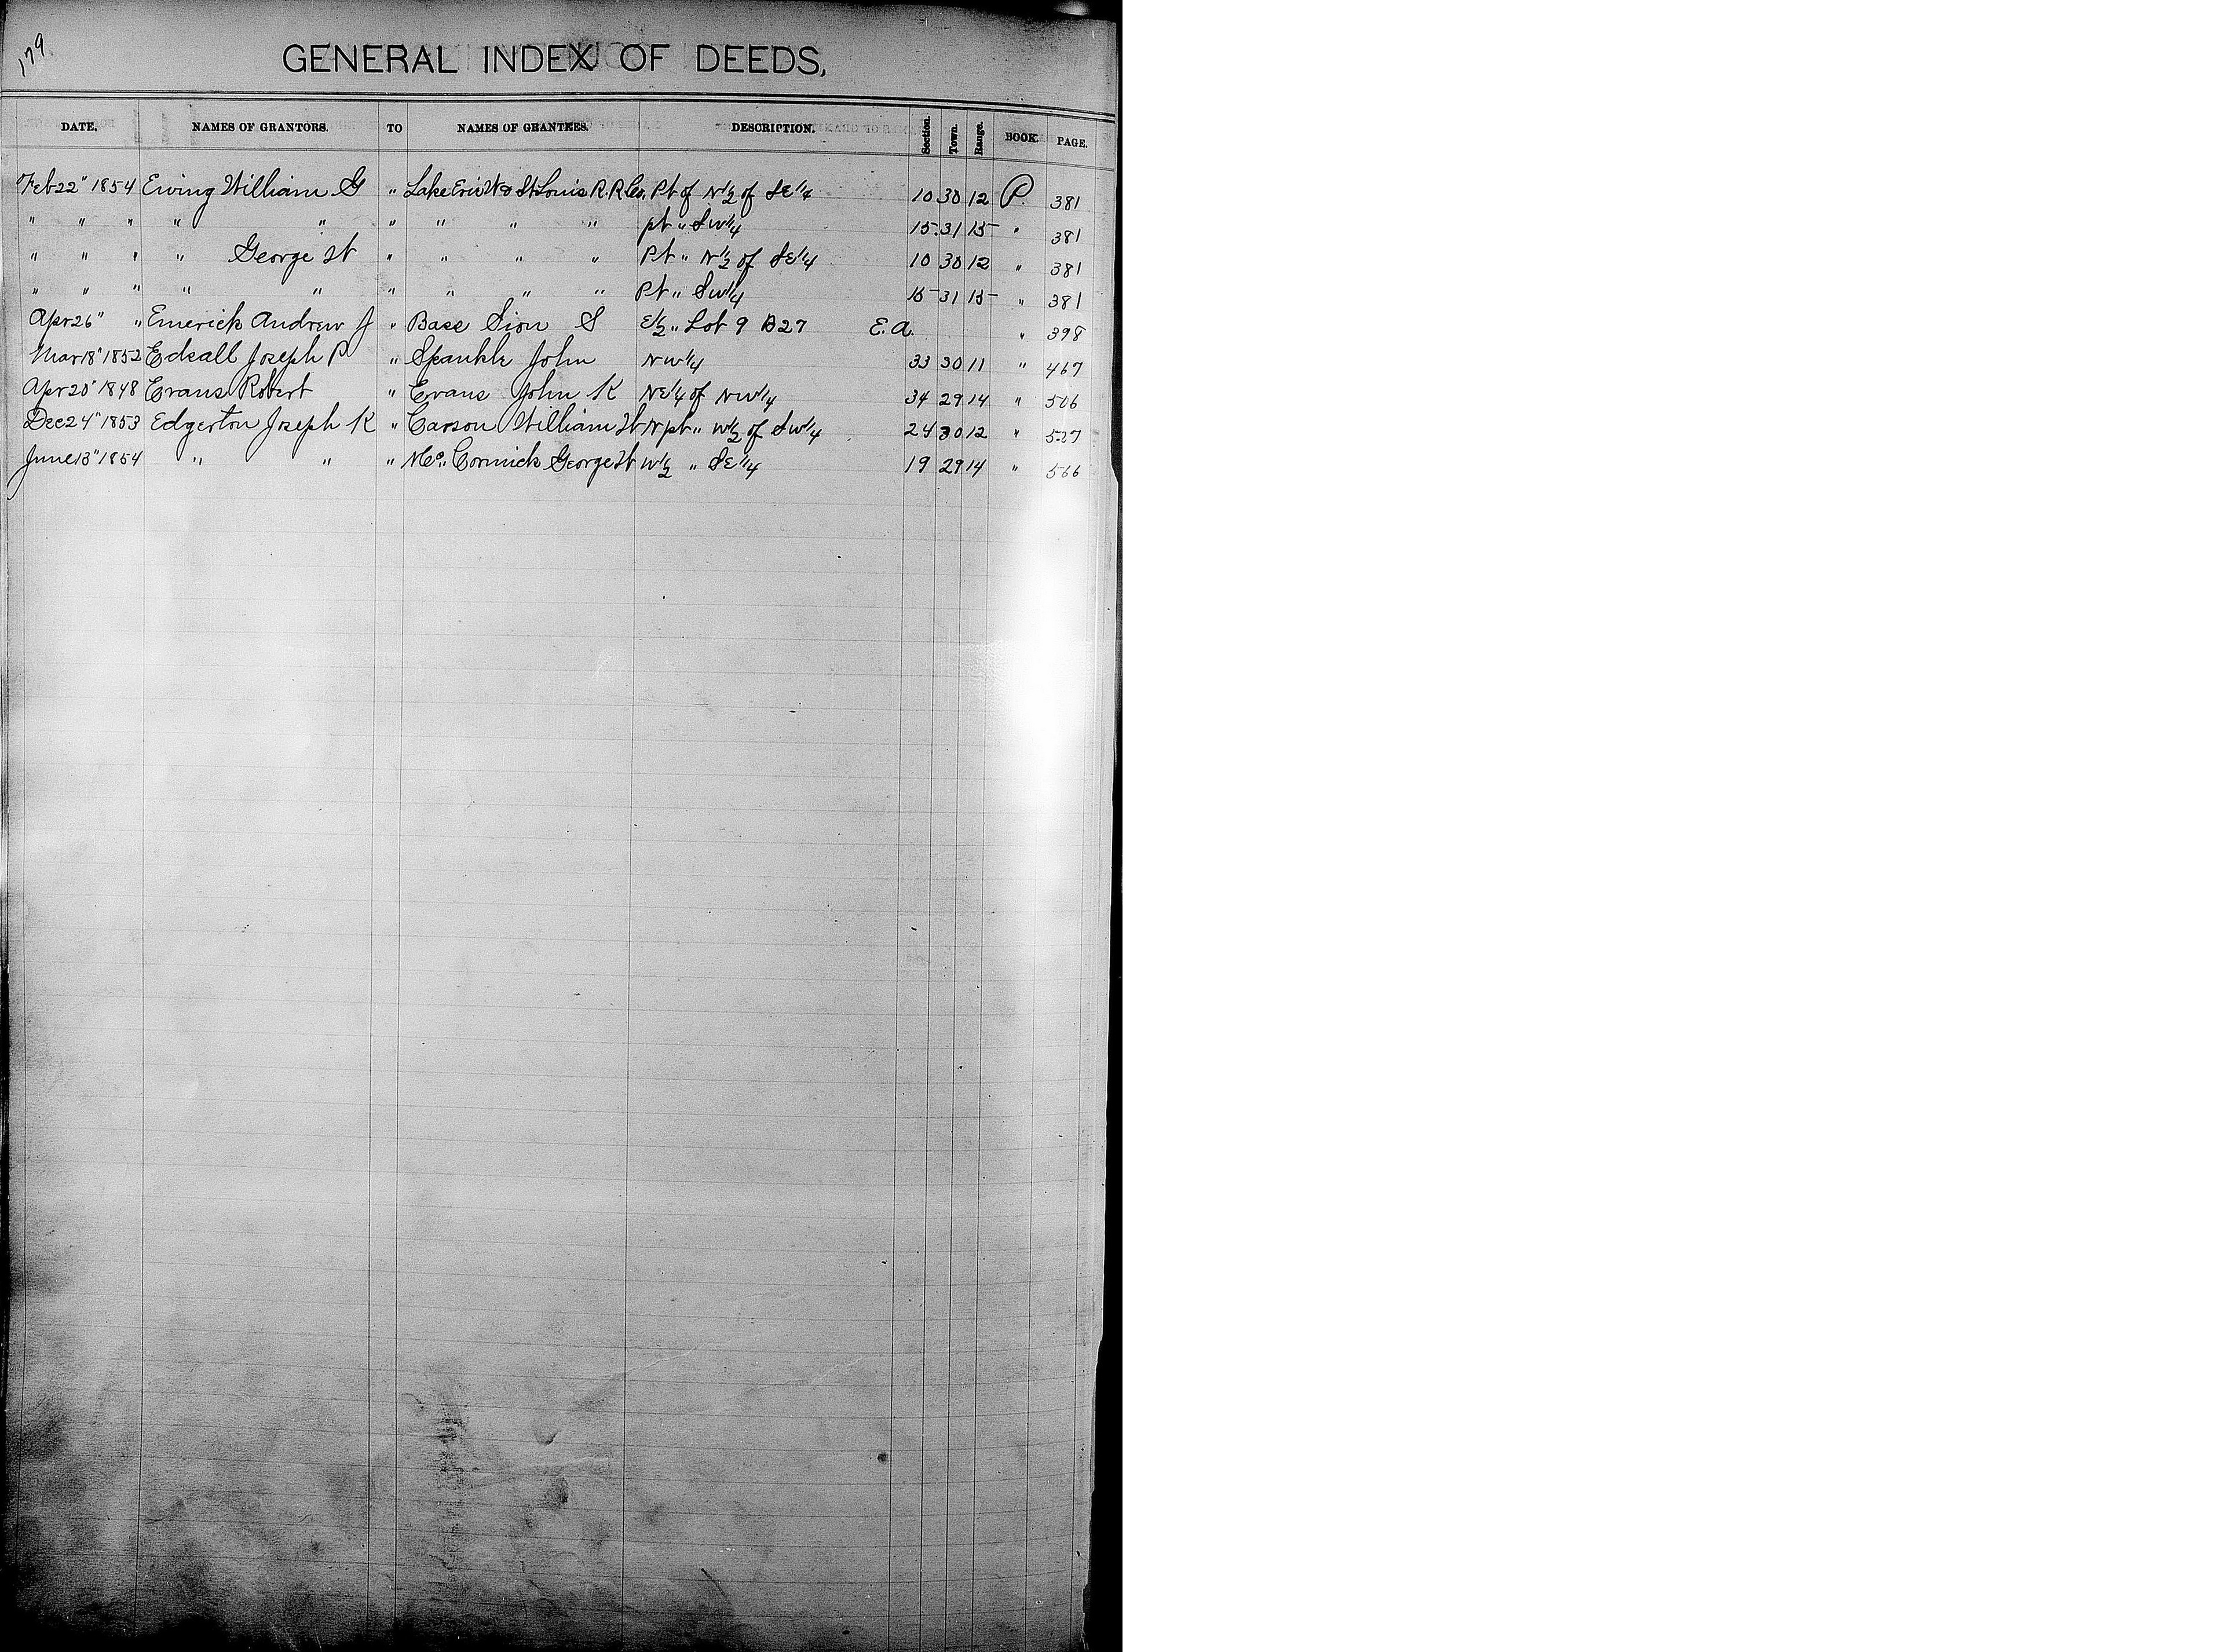 179
GENERAL INDEX OF DEEDS,
DATE. NAMES OF GRANTORS. TO NAMES OF GRANTEES. DESCRIPTION. Section. Town. Range. BOOK. PAGE.
Feb 22" 1854 Ewing William G " Lake Erie W & St Louis R. R Co. Pt of N 1/2 of SE 1/4 10 30 12 P. 381
" " " " " " " " " pt " SW 1/4 15 31 15 " 381
" " " " George W " " " " Pt " N 1/2 of SE 1/4 10 30 12 " 381
" " " " " " " " " Pt " SW 1/4 15 31 15 " 381
Apr 26" " Emerick Andrew J " Base Sion S E 1/2 " Lot 9 B 27 E. A. " 398
Mar 18" 1852 Edsall Joseph P " Spankle John NW 1/4 33 30 11 " 467
Apr 20" 1848 Evans Robert " Evans John K NE 1/4 of NW 1/4 34 29 14 " 506
Dec 24" 1853 Edgerton Joseph K " Carson William W N pt " W 1/2 of SW 1/4 24 30 12 " 527
June 13" 1854 " " " Mc " Cormick George W W 1/2 " SE 1/4 19 29 14 " 566